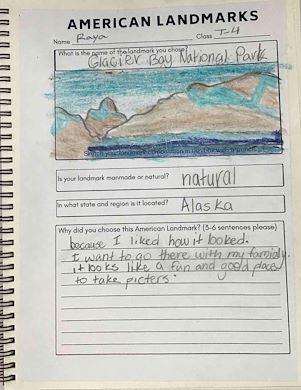 AMERICAN LANDMARKS
Name Raya Class T-4
What is the name of the landmark you chose?
Glacier Bay National Park
Is your landmark manmade or natural? natural
In what state and region is it located? Alaska
Why did you choose this American Landmark? (5-6 sentences please)
because I liked how it looked.
I want to go there with my famidly.
it looks like a fun and good place
to take picters.